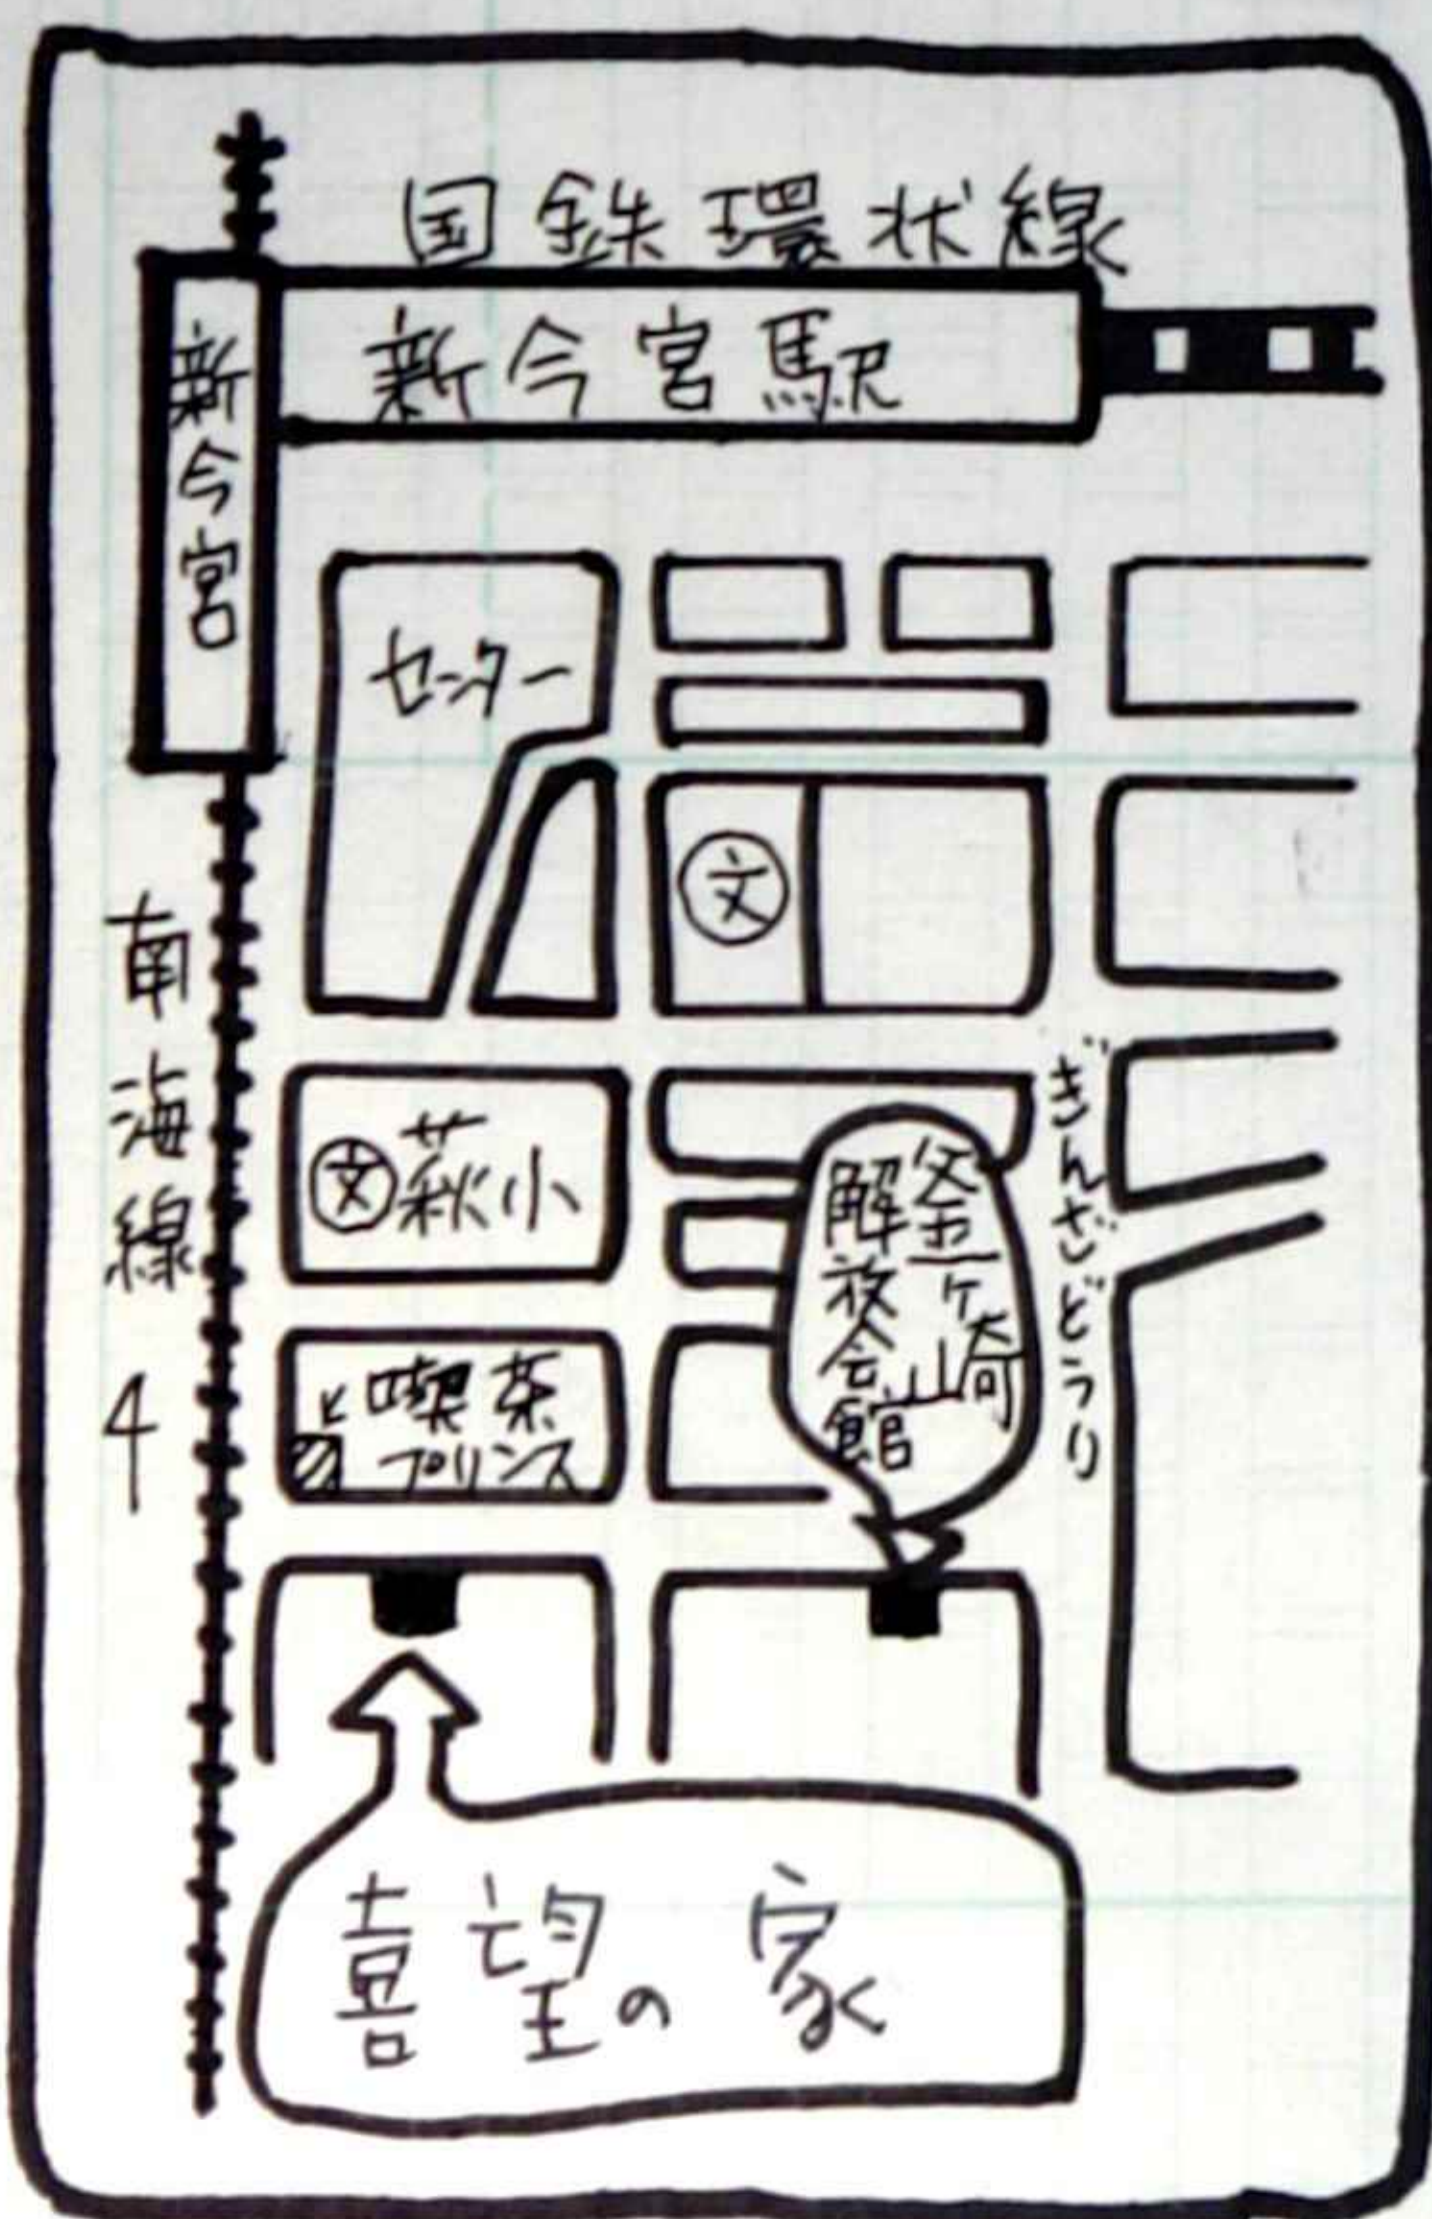 国鉄環状線
新今宮駅
新今宮
センター
文
南海線
文萩小
ぎんざどうり
釜ヶ崎
解放会館
喫茶
プリンス
喜望の家